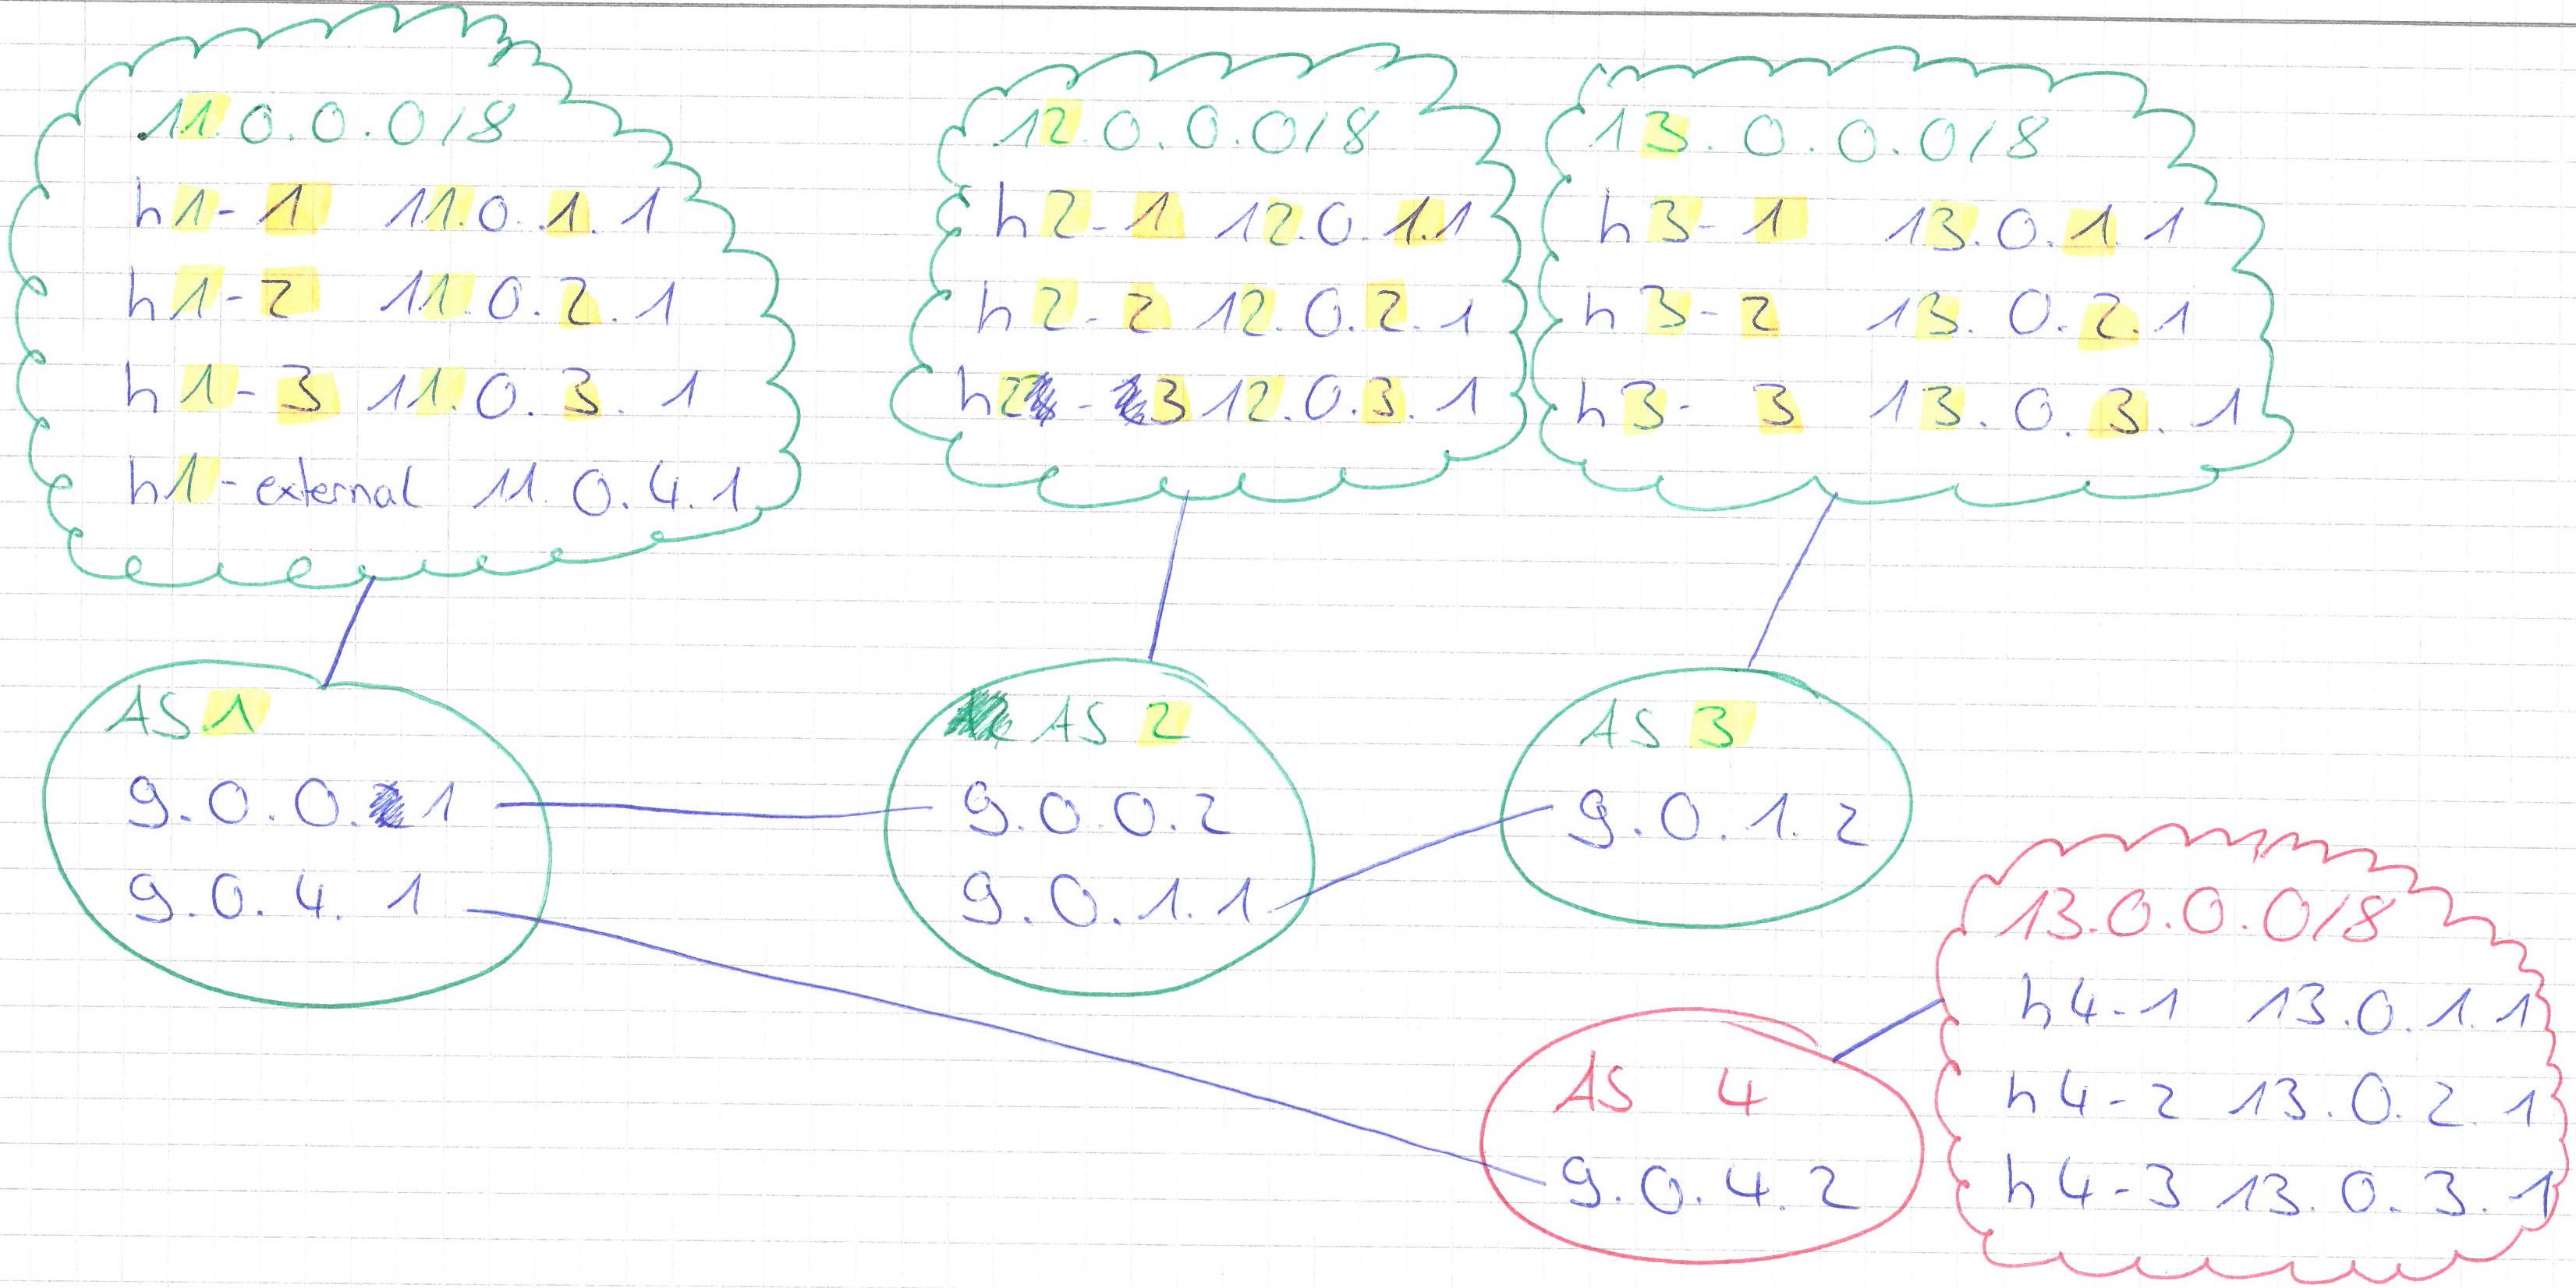 11.0.0.0/8
h1-1 11.0.1.1
h1-2 11.0.2.1
h1-3 11.0.3.1
h1-external 11.0.4.1
12.0.0.0/8
h2-1 12.0.1.1
h2-2 12.0.2.1
h2-3 12.0.3.1
13.0.0.0/8
h3-1 13.0.1.1
h3-2 13.0.2.1
h3-3 13.0.3.1
AS1
9.0.0.1
9.0.4.1
AS 2
9.0.0.2
9.0.1.1
AS 3
9.0.1.2
AS 4
9.0.4.2
13.0.0.0/8
h4-1 13.0.1.1
h4-2 13.0.2.1
h4-3 13.0.3.1